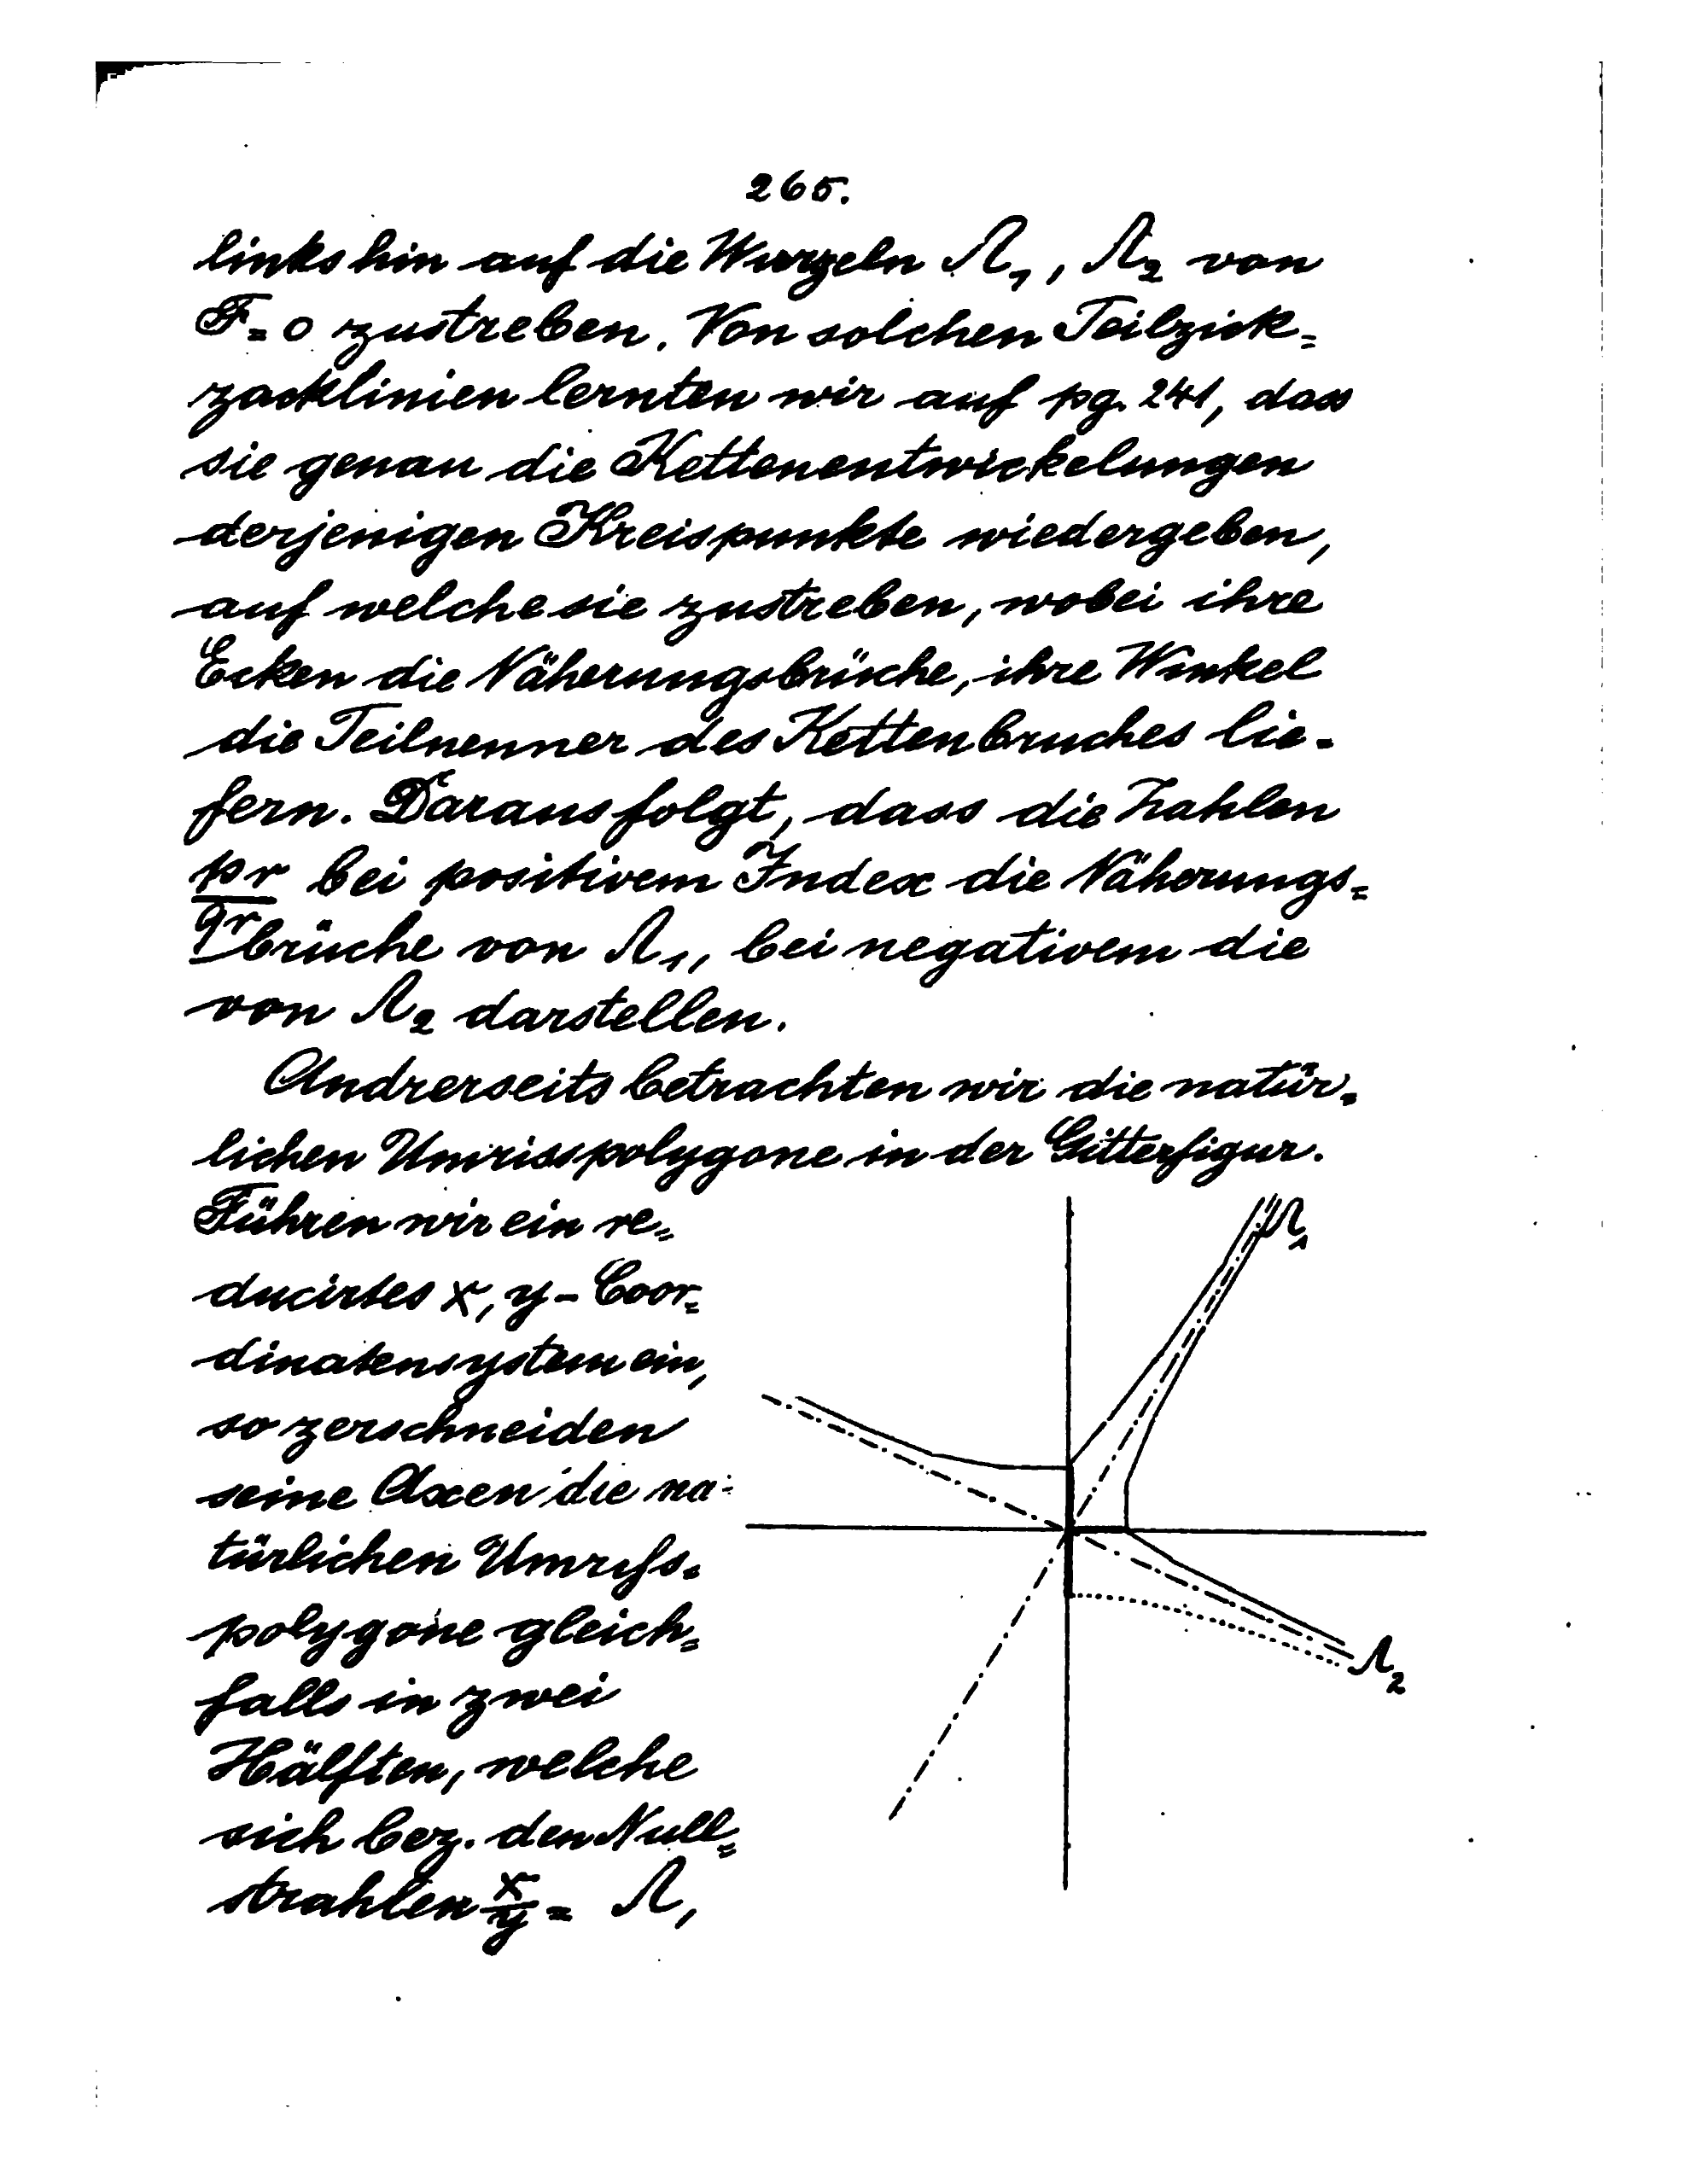 265.
links hin auf die Wurzeln Λ₁, Λ₂ von
F = 0 zustreben. Von solchen Teilzick=
zacklinien lernten wir auf pg. 241, dass
sie genau die Kettenentwickelungen
derjenigen Kreispunkte wiedergeben,
auf welche sie zustreben, wobei ihre
Ecken die Näherungsbrüche, ihre Winkel
die Teilnenner des Kettenbruches lie-
fern. Daraus folgt, dass die Zahlen
pr/qr bei positivem Index die Näherungs=
brüche von Λ₁, bei negativem die
von Λ₂ darstellen.
Andrerseits betrachten wir die natür-
lichen Umrisspolygone in der Gitterfigur.
Führen wir ein re=
ducirtes x, y - Coor=
dinatensystem ein,
so zerschneiden
seine Axen die na-
türlichen Umriſs-
polygone gleich=
falls in zwei
Hälften, welche
sich bez. den Null=
strahlen x/y = Λ,
Λ₁
Λ₂